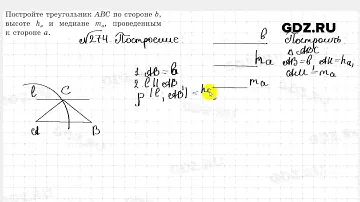 Постройте треугольник ABC по стороне b,
высоте hₐ и медиане mₐ, проведенным
к стороне a.
√274. Построение
b
hₐ
mₐ
Построить
Δ ABC
AB = b, AH = hₐ,
AM = mₐ
1. AB = b
2. l || AB
ρ (l, AB) = hₐ
l
C
A
B
ГДЗ.РФ